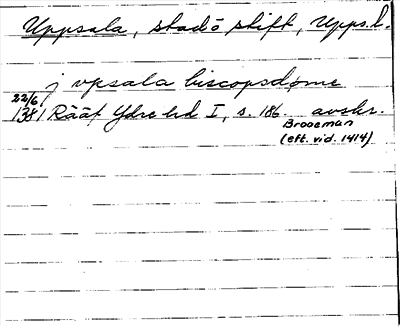 Uppsala, stad o stift, Upps. l.
j vpsala biscopsdøme
22/6 1381 Rääf Ydre hd I, s. 186 avskr.
Brooeman
(eft. vid. 1414)